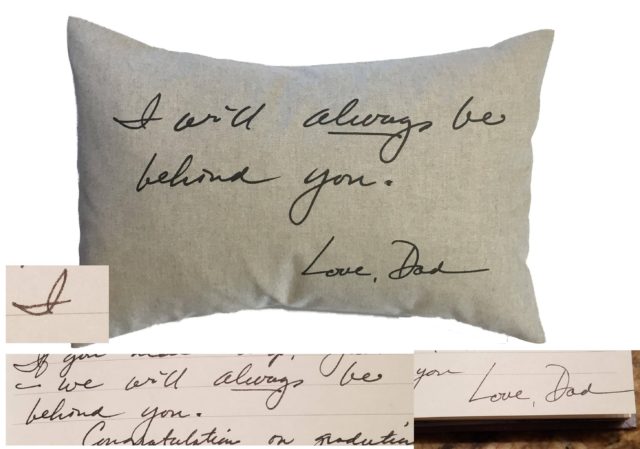 I will always be
behind you.
Love, Dad
I
If you
we will always be
behind you.
Congratulation on
you
Love, Dad